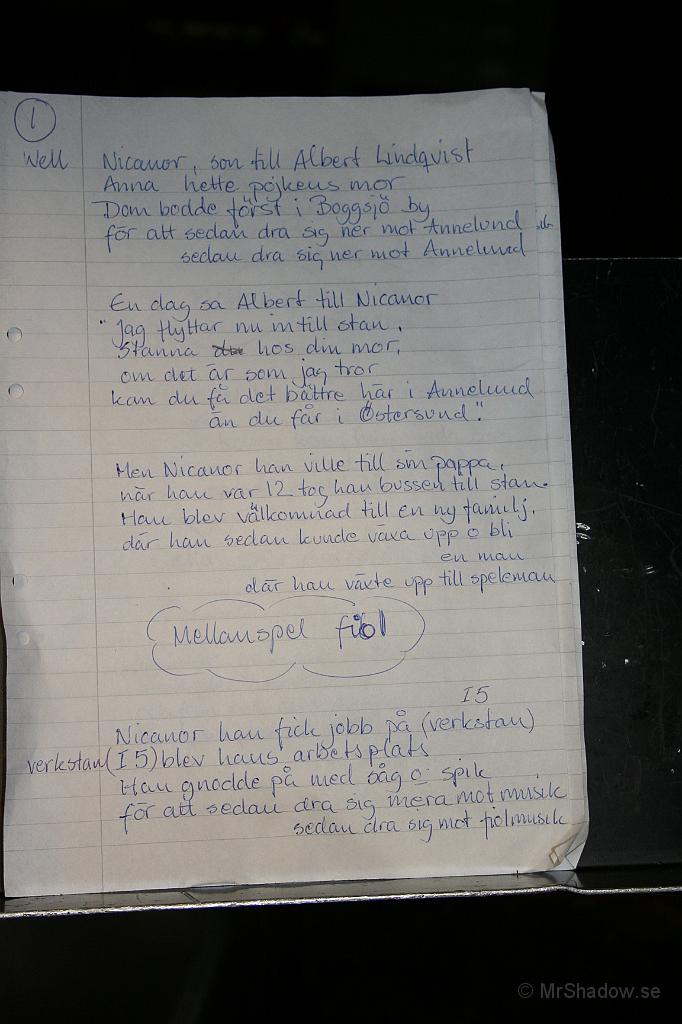 1
Well Nicanor, son till Albert Lindqvist
Anna hette pojkens mor
Dom bodde först i Boggsjö by
för att sedan dra sig ner mot Annelund
sedan dra sig ner mot Annelund
En dag sa Albert till Nicanor
"Jag flyttar nu in till stan.
Stanna hos din mor,
om det är som jag tror
kan du få det bättre här i Annelund
än du får i Östersund."
Men Nicanor han ville till sin pappa,
när han var 12 tog han bussen till stan.
Han blev välkomnad till en ny familj.
där han sedan kunde växa upp o bli
en man
där han växte upp till speleman
Mellanspel fiol
I5
Nicanor han fick jobb på (verkstan)
verkstan (I5) blev hans arbetsplats
Han gnodde på med såg o spik
för att sedan dra sig mera mot musik
sedan dra sig mot fiolmusik
© MrShadow.se